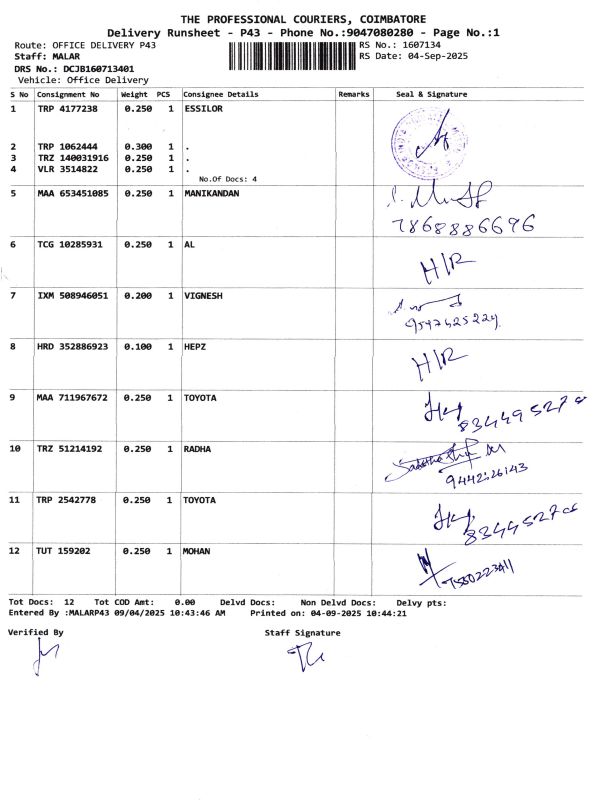 THE PROFESSIONAL COURIERS, COIMBATORE
Delivery Runsheet - P43 - Phone No.:9047080280 - Page No.:1
Route: OFFICE DELIVERY P43 RS No.: 1607134
Staff: MALAR RS Date: 04-Sep-2025
DRS No.: DCJB160713401
Vehicle: Office Delivery
S No Consignment No Weight PCS Consignee Details Remarks Seal & Signature
1 TRP 4177238 0.250 1 ESSILOR
2 TRP 1062444 0.300 1 .
3 TRZ 140031916 0.250 1 .
4 VLR 3514822 0.250 1 .
No.Of Docs: 4
5 MAA 653451085 0.250 1 MANIKANDAN
7868886696
6 TCG 10285931 0.250 1 AL
H/R
7 IXM 508946051 0.200 1 VIGNESH
8 HRD 352886923 0.100 1 HEPZ
H/R
9 MAA 711967672 0.250 1 TOYOTA
10 TRZ 51214192 0.250 1 RADHA
11 TRP 2542778 0.250 1 TOYOTA
12 TUT 159202 0.250 1 MOHAN
Tot Docs: 12 Tot COD Amt: 0.00 Delvd Docs: Non Delvd Docs: Delvy pts:
Entered By :MALARP43 09/04/2025 10:43:46 AM Printed on: 04-09-2025 10:44:21
Verified By Staff Signature